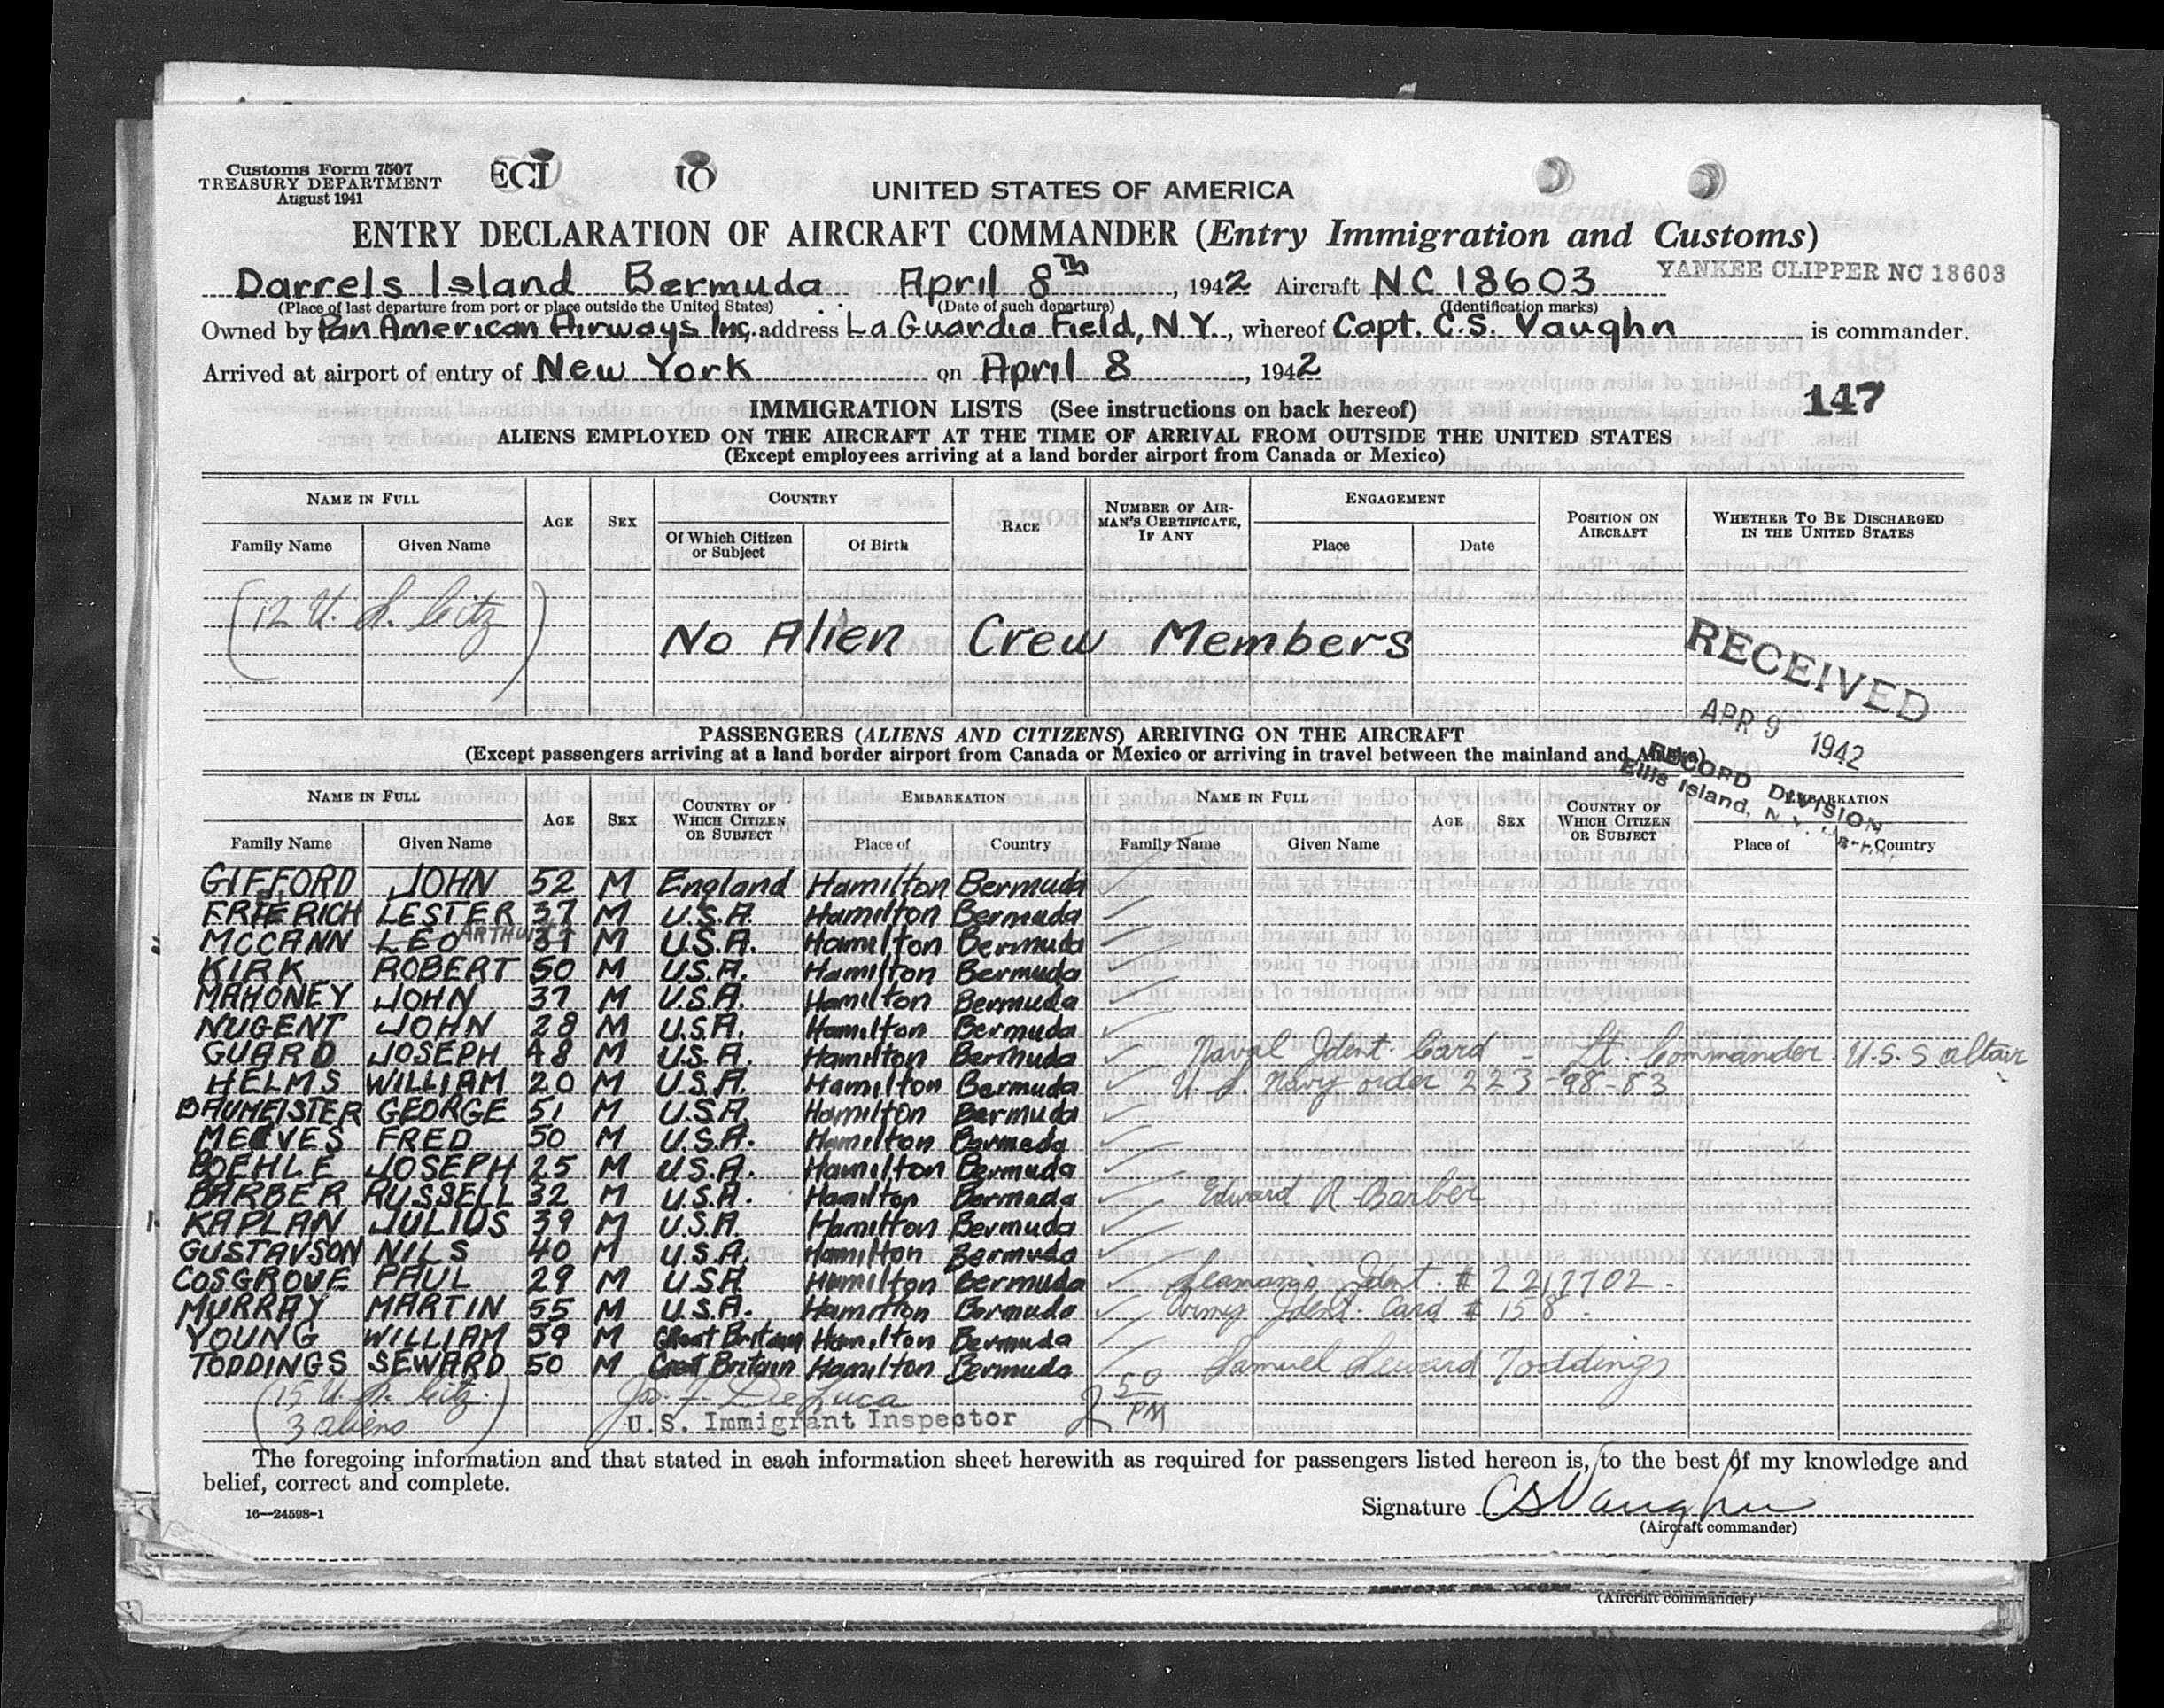 Customs Form 7507
TREASURY DEPARTMENT
August 1941
ECI 10
UNITED STATES OF AMERICA
ENTRY DECLARATION OF AIRCRAFT COMMANDER (Entry Immigration and Customs)
YANKEE CLIPPER NC 18603
Darrels Island Bermuda. April 8th, 1942 Aircraft NC 18603
(Place of last departure from port or place outside the United States) (Date of such departure) (Identification marks)
Owned by Pan American Airways Inc, address La Guardia Field, N.Y., whereof Capt. C.S. Vaughn is commander.
Arrived at airport of entry of New York on April 8, 1942
147
IMMIGRATION LISTS (See instructions on back hereof)
ALIENS EMPLOYED ON THE AIRCRAFT AT THE TIME OF ARRIVAL FROM OUTSIDE THE UNITED STATES
(Except employees arriving at a land border airport from Canada or Mexico)
NAME IN FULL AGE SEX COUNTRY RACE NUMBER OF AIRMAN'S CERTIFICATE, IF ANY ENGAGEMENT POSITION ON AIRCRAFT WHETHER TO BE DISCHARGED IN THE UNITED STATES
Family Name Given Name Of Which Citizen or Subject Of Birth Place Date
(12 U. S. Citz)
No Alien Crew Members
RECEIVED
APR 9 1942
RECORD DIVISION
Ellis Island, N.Y.
PASSENGERS (ALIENS AND CITIZENS) ARRIVING ON THE AIRCRAFT
(Except passengers arriving at a land border airport from Canada or Mexico or arriving in travel between the mainland and Alaska)
NAME IN FULL AGE SEX COUNTRY OF WHICH CITIZEN OR SUBJECT EMBARKATION NAME IN FULL AGE SEX COUNTRY OF WHICH CITIZEN OR SUBJECT EMBARKATION
Family Name Given Name Place of Country Family Name Given Name Place of Country
GIFFORD JOHN 52 M England Hamilton Bermuda
FRIERICH LESTER 37 M U.S.A. Hamilton Bermuda
MCCANN LEO ARTHUR 31 M U.S.A. Hamilton Bermuda
KIRK ROBERT 50 M U.S.A. Hamilton Bermuda
MAHONEY JOHN 37 M U.S.A. Hamilton Bermuda
NUGENT JOHN 28 M U.S.A. Hamilton Bermuda
GUARD JOSEPH 48 M U.S.A. Hamilton Bermuda Naval Ident. Card - Lt. Commander. U.S.S altair
HELMS WILLIAM 20 M U.S.A. Hamilton Bermuda U. S. Navy order 223-98-83
BAUMEISTER GEORGE 51 M U.S.A. Hamilton Bermuda
MEEVES FRED 50 M U.S.A. Hamilton Bermuda
BOEHLE JOSEPH 25 M U.S.A. Hamilton Bermuda
BARBER RUSSELL 32 M U.S.A. Hamilton Bermuda Edward R. Barber
KAPLAN JULIUS 39 M U.S.A Hamilton Bermuda
GUSTAVSON NILS 40 M U.S.A. Hamilton Bermuda
COSGROVE PAUL 29 M USA Hamilton Bermuda Seaman's Ident. # 2217702.
MURRAY MARTIN 55 M U.S.A. Hamilton Bermuda Army Ident. Card # 158.
YOUNG WILLIAM 59 M Great Britain Hamilton Bermuda
TODDINGS SEWARD 50 M Great Britain Hamilton Bermuda Samuel Seward Toddings
(15 U. S. Citz.
3 aliens)
Jos. F. DeLuca
U.S. Immigrant Inspector
2 50 PM
The foregoing information and that stated in each information sheet herewith as required for passengers listed hereon is, to the best of my knowledge and
belief, correct and complete.
16—24598-1
Signature CS Vaughn
(Aircraft commander)
(Aircraft commander)